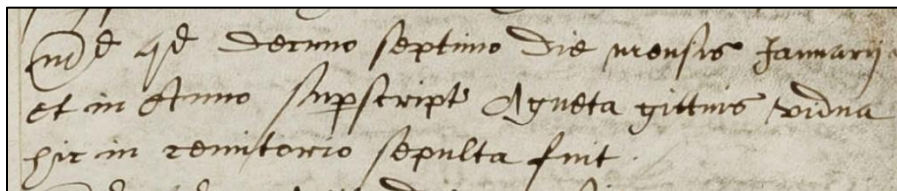 Md qd decimo septimo die mensis Januarij
et in Anno supscript Agneta gittins vidua
hic in cemitorio sepulta fuit.